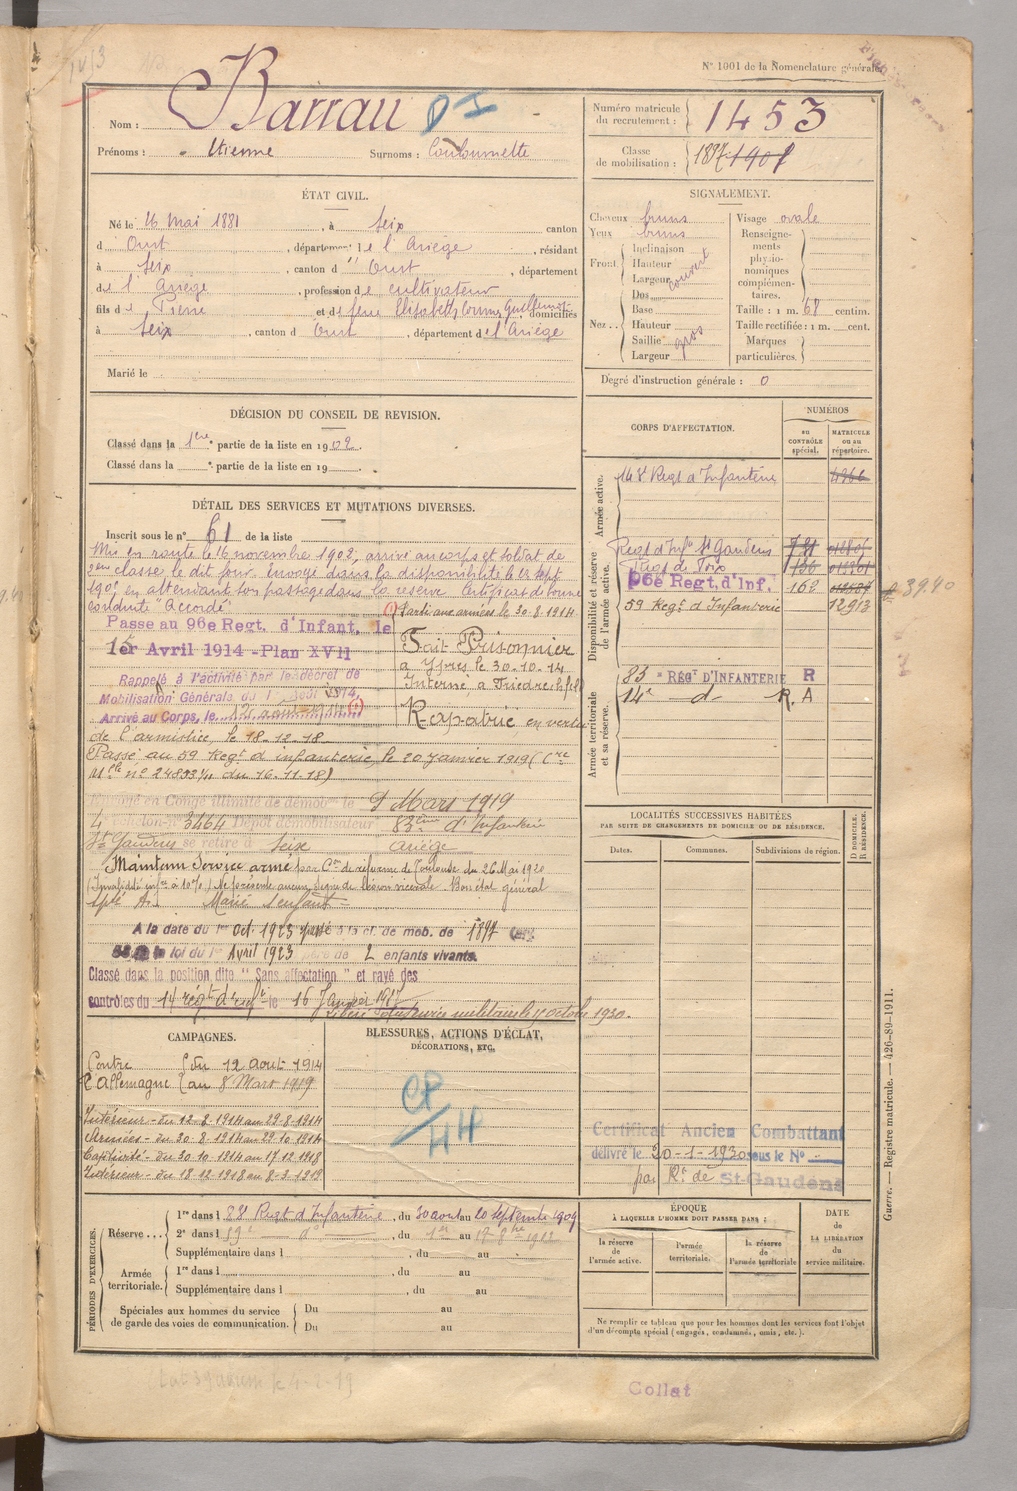 N° 1001 de la Nomenclature générale.
Nom : Barrau
Prénoms : Etienne Surnoms : Couloumette
Numéro matricule du recrutement : 1453
Classe de mobilisation : 1897 1901
ÉTAT CIVIL.
Né le 16 Mai 1881, à Seix canton
d Oust, département de l'Ariège, résidant
à Seix, canton d Oust, département
de l'Ariège, profession de cultivateur
fils de Pierre et de feue Elisabeth domiciliés
à Seix, canton d Oust, département de l'Ariège
Marié le
SIGNALEMENT.
Cheveux bruns
Yeux bruns
Front Inclinaison
Hauteur
Largeur couvert
Nez Dos
Base
Hauteur
Saillie gros
Largeur
Visage ovale
Renseignements physionomiques complémentaires.
Taille : 1 m. 68 centim.
Taille rectifiée : 1 m. cent.
Marques particulières.
Degré d'instruction générale : 0
DÉCISION DU CONSEIL DE REVISION.
Classé dans la 1ere partie de la liste en 1902.
Classé dans la partie de la liste en 19
CORPS D'AFFECTATION.
NUMÉROS
au CONTRÔLE spécial.
MATRICULE ou au répertoire.
Armée active.
Disponibilité et réserve de l'armée active.
Régt d'Infie St Gaudens
Régt de Foix
96e Regt. d'Inf. 162 3940
59 Regt d'Infanterie 12913
Armée territoriale et sa réserve.
83 e RÉGt D'INFANTERIE R
14e d° R. A
DÉTAIL DES SERVICES ET MUTATIONS DIVERSES.
Inscrit sous le n° 61 de la liste
Mis en route le 16 novembre 1902, arrivé au corps et soldat de
2eme classe le dit jour. Envoyé dans la disponibilité le
en attendant son passage dans la réserve. Certificat de bonne
conduite "Accordé"
Passe au 96e Regt. d'Infant. le
1er Avril 1914 - Plan XVII
Rappelé à l'activité par le décret de
Mobilisation Générale du 1 Août 1914,
Arrivé au Corps, le 12 août 1914 (1)
(1) Parti aux armées le 30-8-1914
Fait Prisonnier
à Ypres le 30-10-14
Interné à Friedrichsfeld
Rapatrié en vertu
de l'armistice, le 18-12-18
Passé au 59 Regt d'infanterie le 20 Janvier 1919 (Cre
Mlle n° 24893 1/11 du 16.11.18)
Envoyé en Congé illimité de démob. le 9 Mars 1919
4 échelon n° 3464 Dépôt démobilisateur 83eme d'Infanterie
St Gaudens se retire à Seix Ariège
Maintenu Service armé par Con de réforme de Toulouse du 26 Mai 1920
(Invalidité infre à 10%) Ne présente aucun signe de lésion viscérale. Bon état général
Marié 1 enfant
A la date du 1er Oct. 1923 passé à la cl. de mob. de 1897
loi du 1er Avril 1923 père de 2 enfants vivants.
Classé dans la position dite "Sans affectation" et rayé des
contrôles du 14 régt d'infie le 16 Janvier 1927
Libéré du service militaire le 1er octobre 1930.
LOCALITÉS SUCCESSIVES HABITÉES
PAR SUITE DE CHANGEMENTS DE DOMICILE OU DE RÉSIDENCE.
Dates. Communes. Subdivisions de région. D. DOMICILE. R. RÉSIDENCE.
CAMPAGNES.
Contre l'Allemagne du 12 août 1914
au 8 Mars 1919
Intérieur - du 12-8-1914 au 29-8-1914
Armées - du 30-8-1914 au 29-10-1914
Captivité - du 30-10-1914 au 17-12-1918
Intérieur - du 18-12-1918 au 8-3-1919
BLESSURES, ACTIONS D'ÉCLAT,
DÉCORATIONS, ETC.
CP/44
Certificat Ancien Combattant
délivré le 20-1-1930 sous le N°
par Rt de St-Gaudens
PÉRIODES D'EXERCICES.
Réserve... 1re dans l 88 Regt d'Infanterie, du 30 aout au 20 septembre 1909
2e dans l 59e d°, du 1er au 17 8bre 1912
Supplémentaire dans l , du au
Armée territoriale. 1re dans l , du au
Supplémentaire dans l , du au
Spéciales aux hommes du service de garde des voies de communication. Du au
Du au
ÉPOQUE
À LAQUELLE L'HOMME DOIT PASSER DANS :
la réserve de l'armée active.
l'armée territoriale.
la réserve de l'armée territoriale
DATE de LA LIBÉRATION du service militaire.
Ne remplir ce tableau que pour les hommes dont les services font l'objet
d'un décompte spécial (engagés, condamnés, omis, etc.).
Guerre. — Registre matricule. — 426-89-1911.
Collat